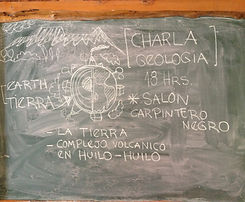 [CHARLA
GEOLOGIA]
18 HRS.
EARTH
TIERRA
* SALON
CARPINTERO
NEGRO
- LA TIERRA
- COMPLEJO VOLCANICO
EN HUILO-HUILO